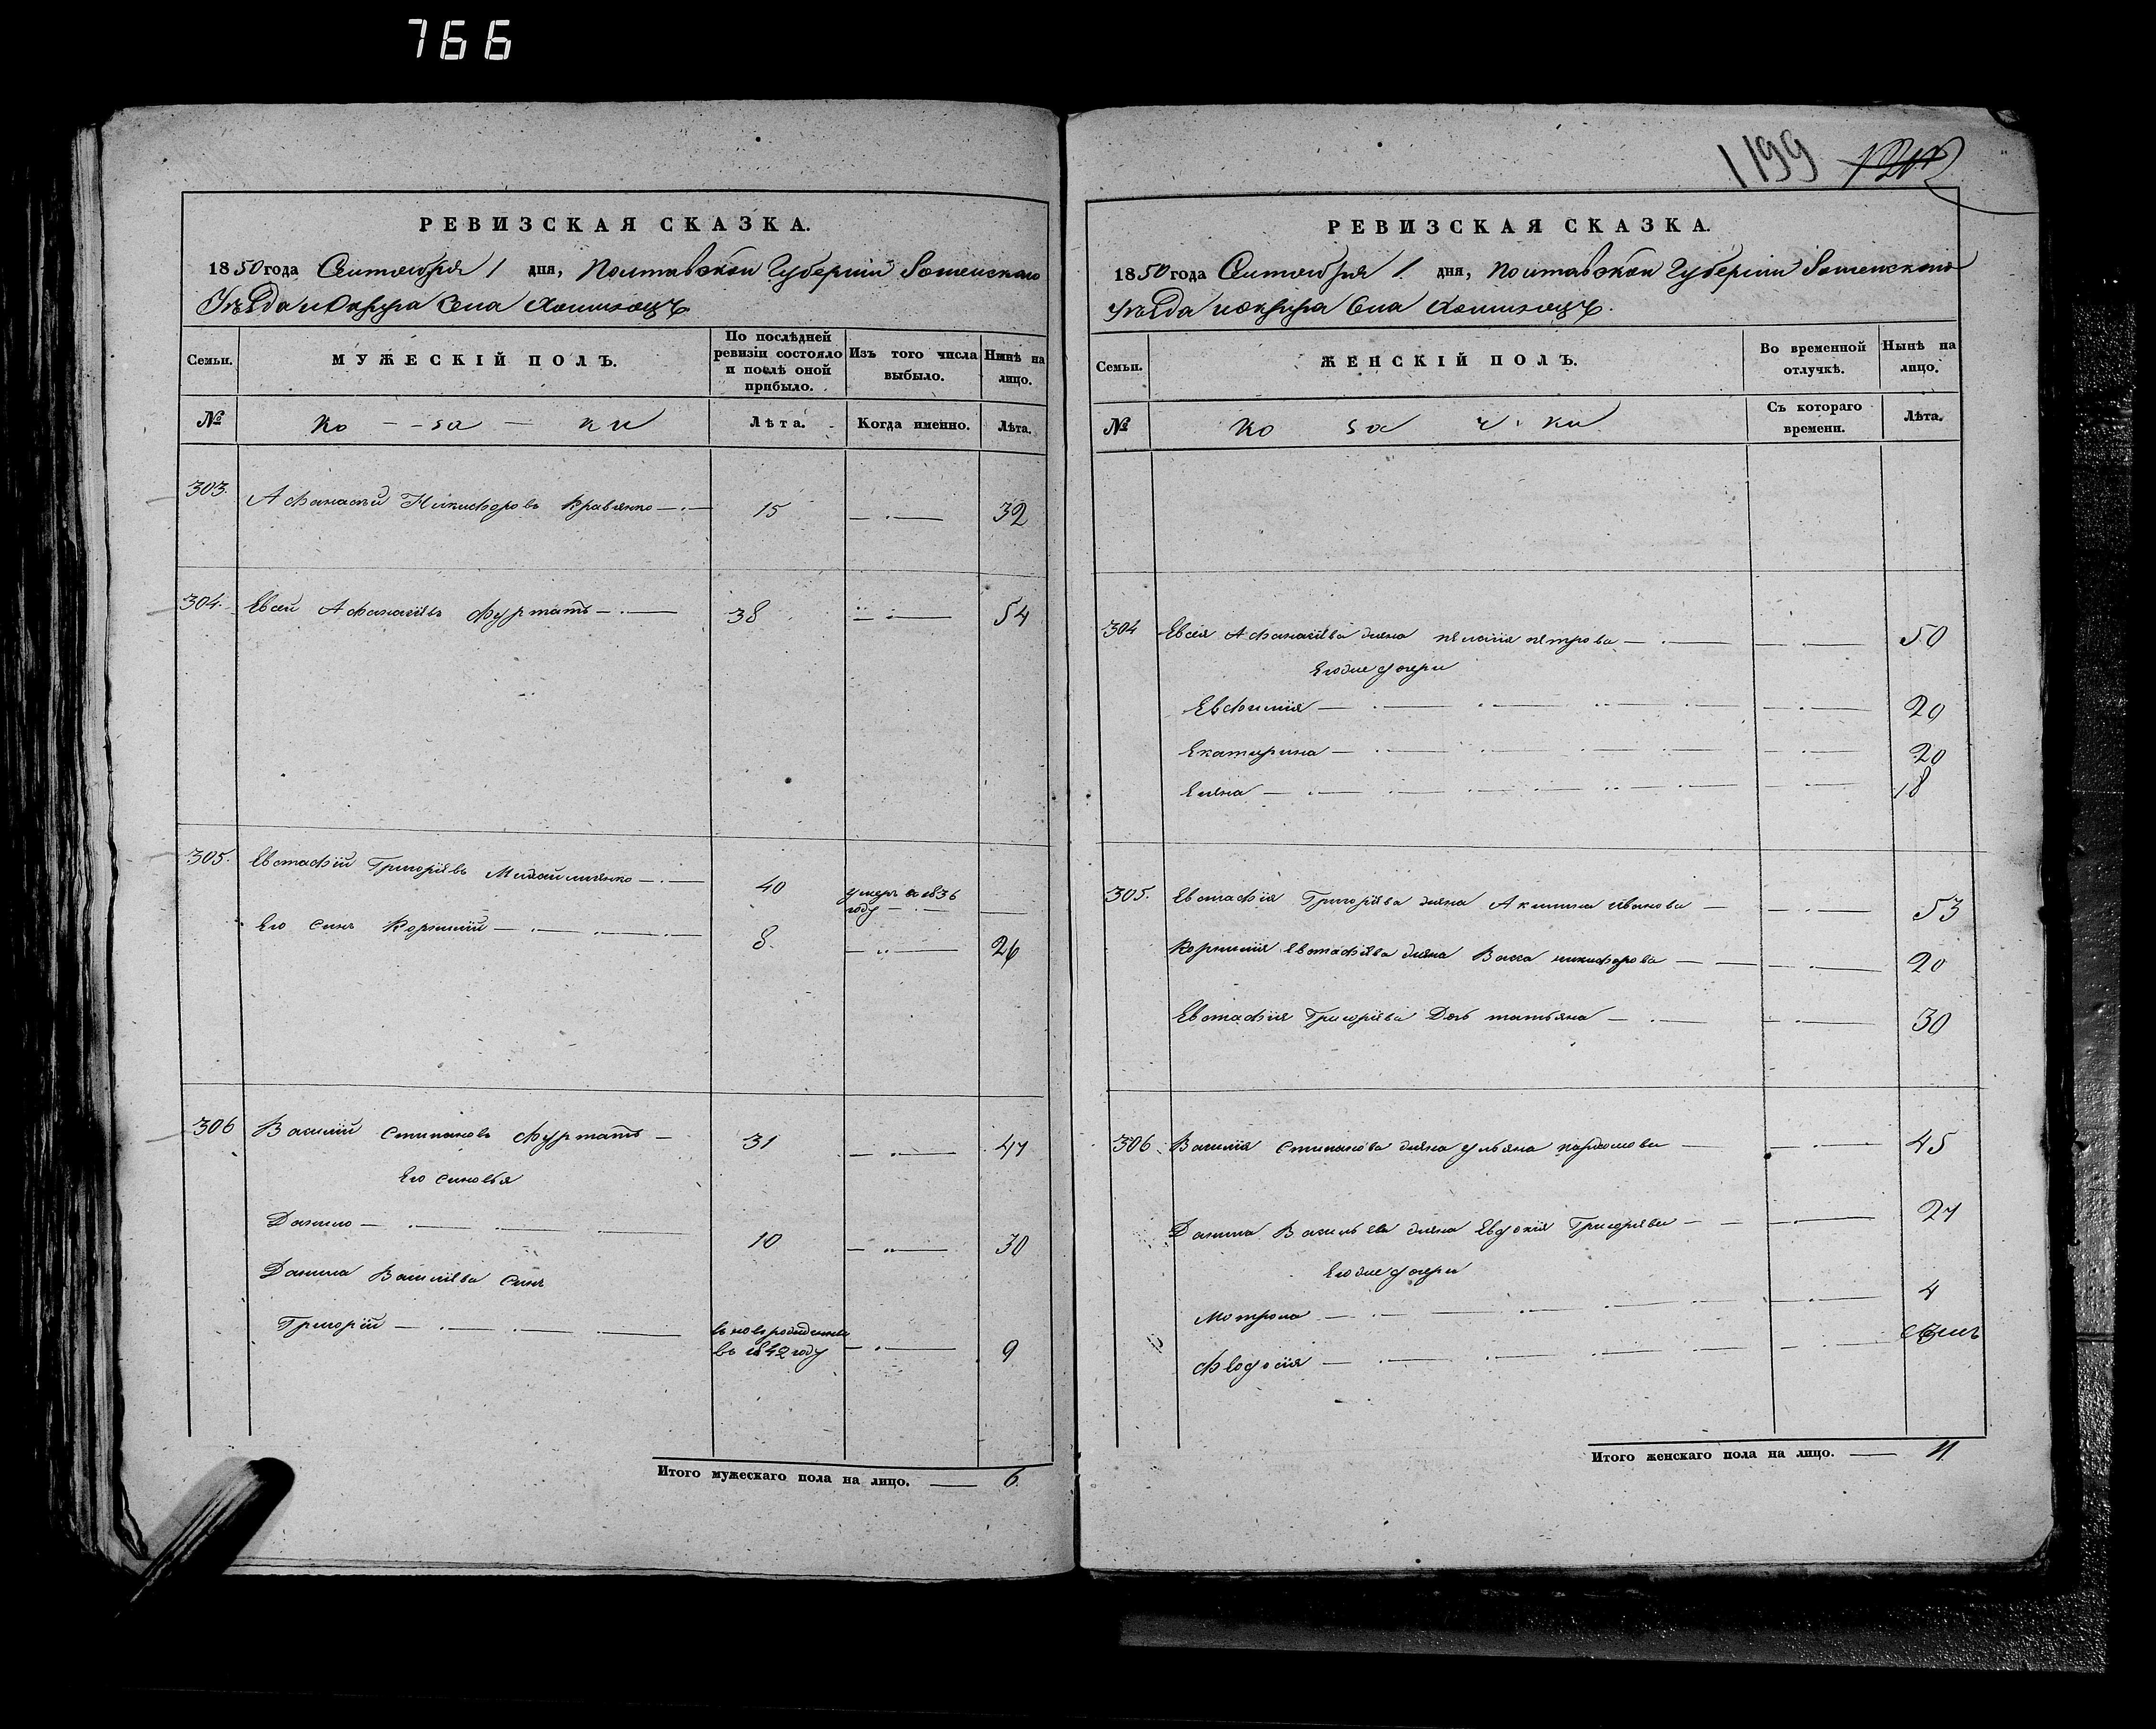 766
РЕВИЗСКАЯ СКАЗКА.
1850 года Сентября 1 дня, Полтавской Губерніи Роменского
Уѣзда и Округа Села
Семьи.
МУЖЕСКІЙ ПОЛЪ.
По послѣдней ревизіи состояло и послѣ оной прибыло.
Изъ того числа выбыло.
Нынѣ на лицо.
№
Ко - за - ки
Лѣта.
Когда именно.
Лѣта.
303. Афанасій Никифоровъ Кравченко 15 32
304. Евсей Афанасіевъ 38 54
305. Евстафій Григоріевъ Михайличенко 40 умеръ въ 1836
году
Его синъ Корнилій 8. 26
306 Василій Степановъ 31 47
Его синовья
Данило 10 30
Данила Василіева Синъ
Григорій новорожденный
въ 1842 году 9
Итого мужескаго пола на лицо. 6
1199
РЕВИЗСКАЯ СКАЗКА.
1850 года Сентября 1 дня, Полтавской Губерніи Роменского
Уѣзда и Округа Села
Семьи.
ЖЕНСКІЙ ПОЛЪ.
Во временной отлучкѣ.
Нынѣ на лицо.
№
Ко за ч ки
Съ котораго времени.
Лѣта.
304 Евсея Афанасіева жена Пелагія Петрова 50
Его же дочери
Евфимія 20
Екатерина 20
Елена 18
305. Евстафія Григоріева жена Акилина Иванова 53
Корнилія Евстафіева жена Васса Никифорова 20
Евстафія Григоріева Дочь Татьяна 30
306 Василія Степанова жена Ульяна 45
Данила Васильева жена Евдокія Григоріева 27
Его же дочери
Мотрона 4
Феодосія
Итого женскаго пола на лицо. 11